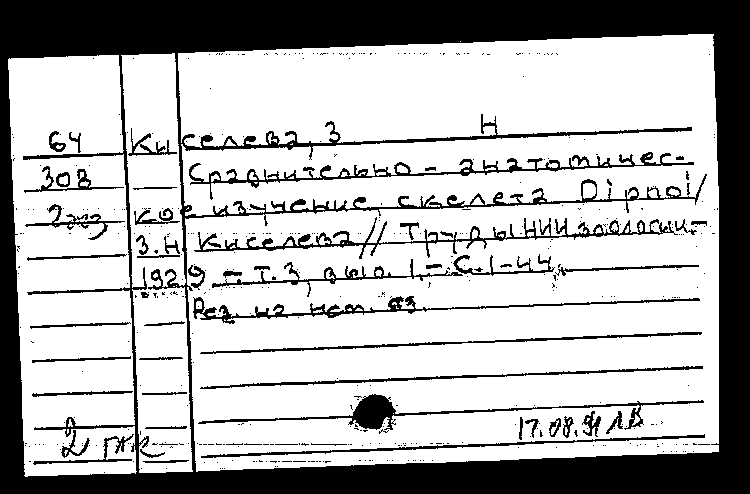 64 Киселева, З Н
308 Сравнительно - анатомичес-
2экз кое изучение скелета Dipnoi/
З.Н. Киселева // Труды НИИ зоологии.-
1929 - Т.3, вып. 1.- С.1-44.
Рез. на нем. яз.
2 ГЖК 17.08.91 ЛВ